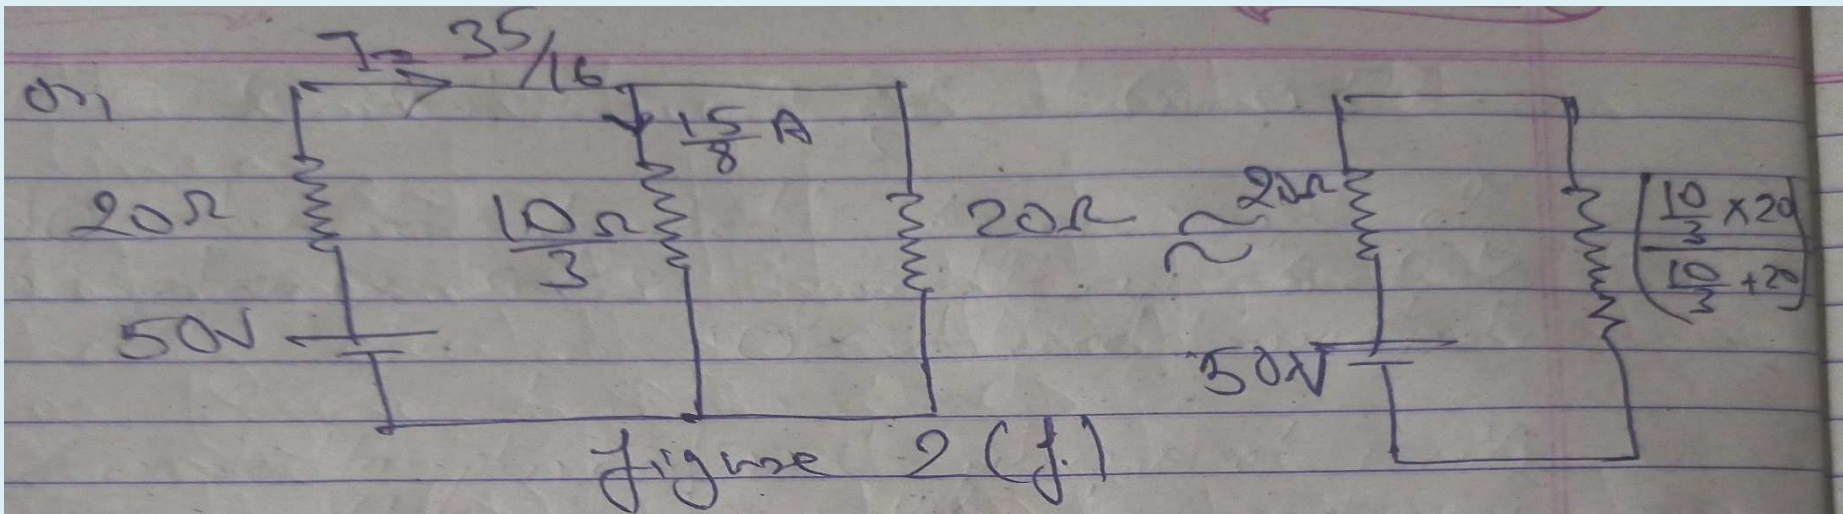 or,
I = 35/16
15/8 A
20Ω
10/3 Ω
20Ω
50V
≈
20Ω
(10/3 × 20 / 10/3 + 20)
50V
figure 2 (f.)